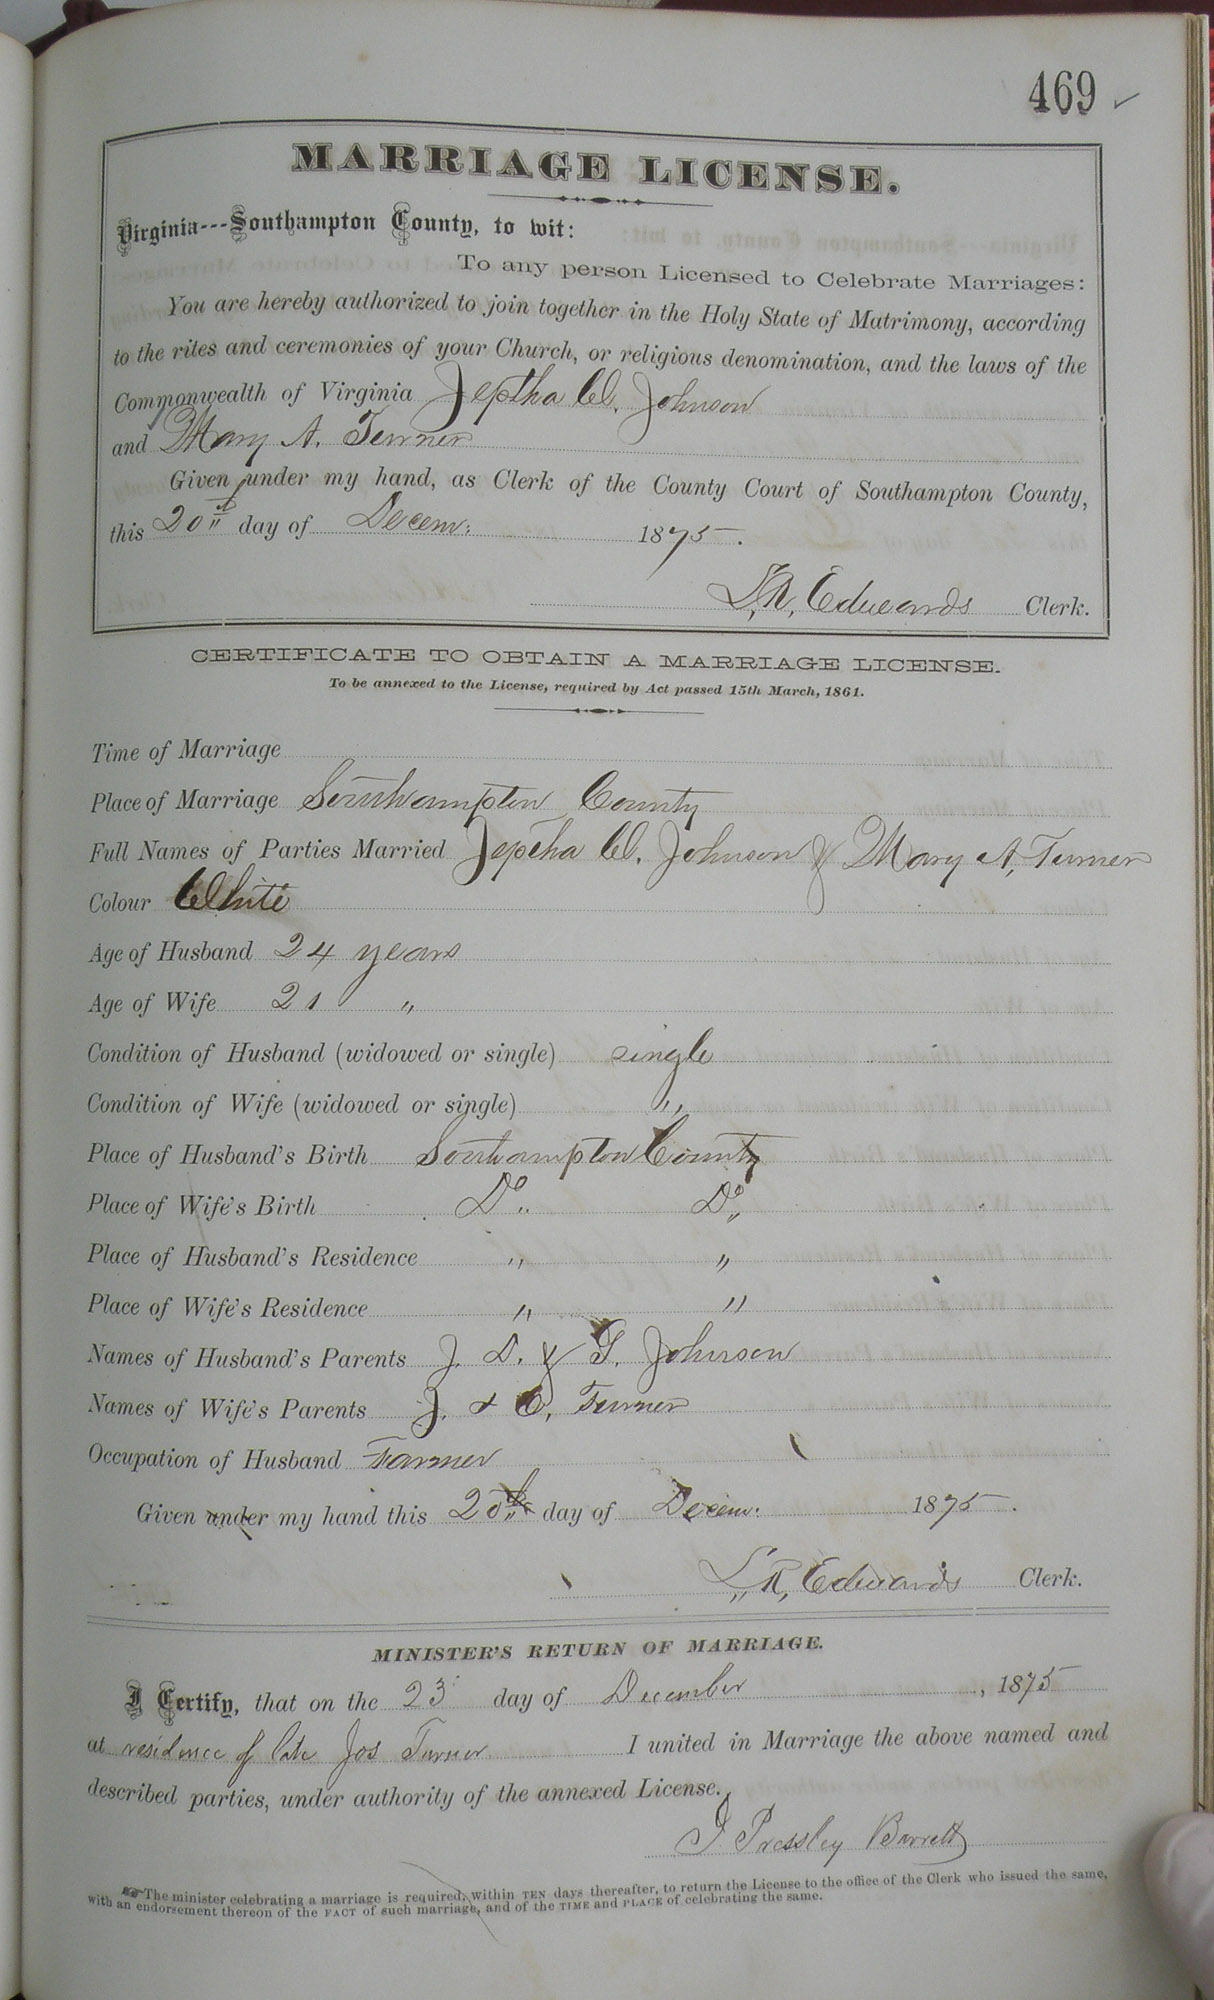 469 ✓
MARRIAGE LICENSE.
Virginia---Southampton County, to wit:
To any person Licensed to Celebrate Marriages:
You are hereby authorized to join together in the Holy State of Matrimony, according
to the rites and ceremonies of your Church, or religious denomination, and the laws of the
Commonwealth of Virginia Jeptha W. Johnson
and Mary A. Turner
Given under my hand, as Clerk of the County Court of Southampton County,
this 20th day of Decem: 1875.
L. R. Edwards Clerk.
CERTIFICATE TO OBTAIN A MARRIAGE LICENSE.
To be annexed to the License, required by Act passed 15th March, 1861.
Time of Marriage
Place of Marriage Southampton County
Full Names of Parties Married Jeptha W. Johnson & Mary A. Turner
Colour White
Age of Husband 24 years
Age of Wife 21 "
Condition of Husband (widowed or single) single
Condition of Wife (widowed or single) "
Place of Husband's Birth Southampton County
Place of Wife's Birth Do. Do.
Place of Husband's Residence " "
Place of Wife's Residence " "
Names of Husband's Parents J. D. & G. Johnson
Names of Wife's Parents J. & C. Turner
Occupation of Husband Farmer
Given under my hand this 20th day of Decem: 1875.
L. R. Edwards Clerk.
MINISTER'S RETURN OF MARRIAGE.
I Certify, that on the 23 day of December, 1875
at residence of late Jos Turner I united in Marriage the above named and
described parties, under authority of the annexed License.
J. Pressley Barrett
☞The minister celebrating a marriage is required, within TEN days thereafter, to return the License to the office of the Clerk who issued the same,
with an endorsement thereon of the FACT of such marriage, and of the TIME and PLACE of celebrating the same.